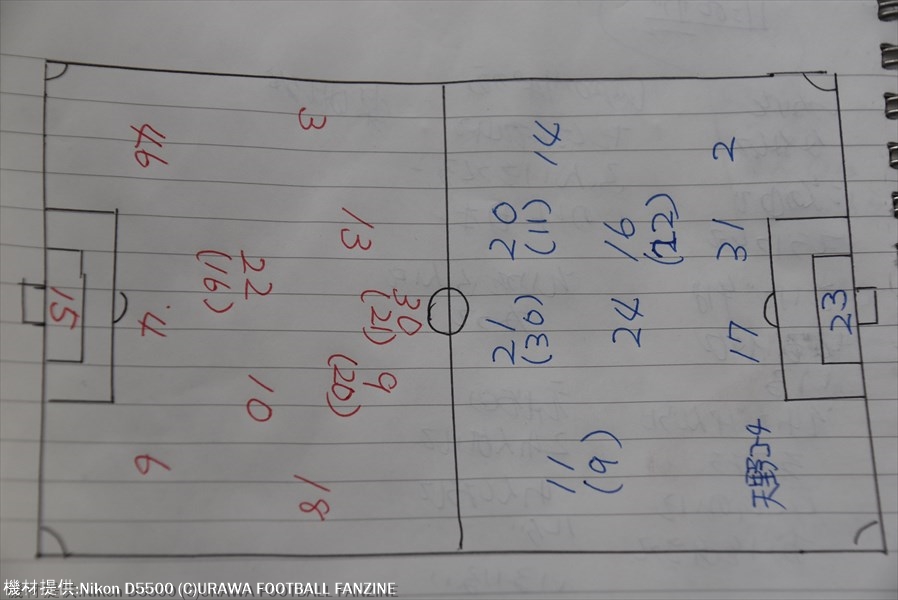 3
46
13
22
(16)
30
(21)
15
4
9
(20)
10
6
18
14
2
20
(11)
16
(22)
31
21
(30)
24
17
23
11
(9)
天野24
機材提供:Nikon D5500 (C)URAWA FOOTBALL FANZINE